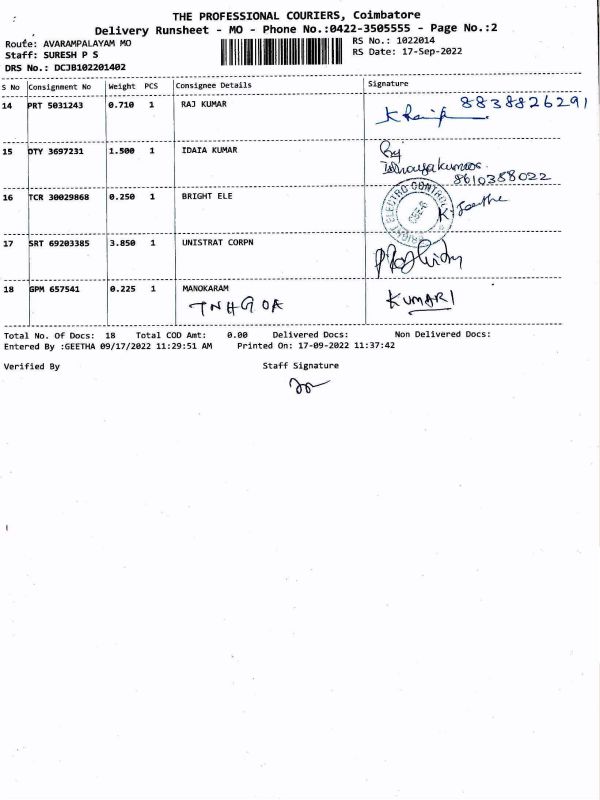 THE PROFESSIONAL COURIERS, Coimbatore
Delivery Runsheet - MO - Phone No.:0422-3505555 - Page No.:2
Route: AVARAMPALAYAM MO RS No.: 1022014
Staff: SURESH P S RS Date: 17-Sep-2022
DRS No.: DCJB102201402
S No Consignment No Weight PCS Consignee Details Signature
14 PRT 5031243 0.710 1 RAJ KUMAR 8838826291
15 DTY 3697231 1.500 1 IDAIA KUMAR
8610358022
16 TCR 30029868 0.250 1 BRIGHT ELE
BRIGHT ELECTRO CONTROL
CBE-6
K. Geetha
17 SRT 69203385 3.850 1 UNISTRAT CORPN
18 GPM 657541 0.225 1 MANOKARAM KUMARI
TNHGOA
Total No. Of Docs: 18 Total COD Amt: 0.00 Delivered Docs: Non Delivered Docs:
Entered By :GEETHA 09/17/2022 11:29:51 AM Printed On: 17-09-2022 11:37:42
Verified By Staff Signature